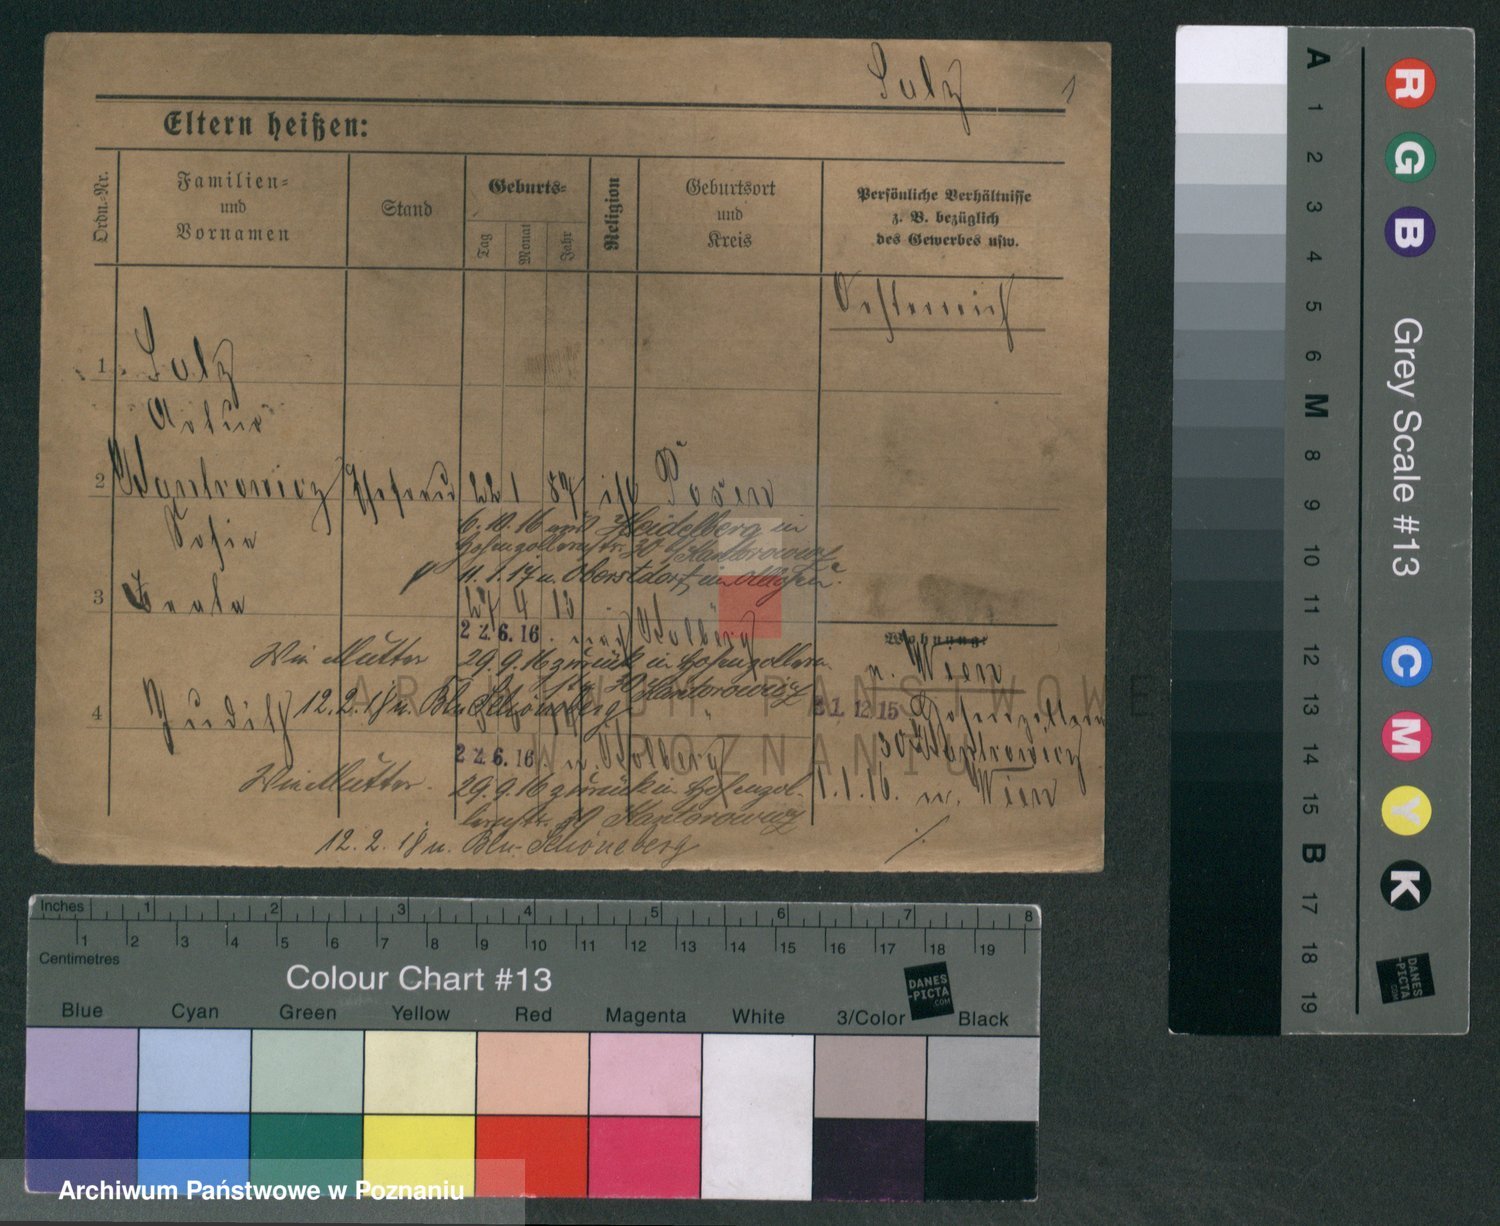 Salz
1
Eltern heißen:
Ordn.-Nr.
Familien-
und
Vornamen
Stand
Geburts-
Tag
Monat
Jahr
Religion
Geburtsort
und
Kreis
Persönliche Verhältnisse
z. B. bezüglich
des Gewerbes usw.
Oesterreich
1
Salz
Artur
2
Kantrowicz Ehefrau 22 1 87 isr Posen
Sofie
6.10.16 nach Heidelberg in
Hohenzollernstr. 30 b/ Kantorowicz
11.1.17 n. Oberstdorf im Allgäu.
3
Beate 27 4 13
22.6.16. nach Kolberg
Wohnung:
Wie Mutter 29.9.16 zurück in Hohenzollern-
n. Wien
30 Kantorowicz
12.2.18 n. Bln Schöneberg
4
Judith
31.12.15 Hohenzollern
30
22.6.16. n. Kolberg
Wie Mutter. 29.9.16 zurück in Hohenzol-
1.1.16. n. Wien
lernstr. 30 Kantorowicz
12.2.18 n. Bln-Schöneberg
ARCHIWUM PAŃSTWOWE
W POZNANIU
Inches 1 2 3 4 5 6 7 8
1 2 3 4 5 6 7 8 9 10 11 12 13 14 15 16 17 18 19
Centimetres
Colour Chart #13
DANES
-PICTA
.COM
Blue Cyan Green Yellow Red Magenta White 3/Color Black
Archiwum Państwowe w Poznaniu
A 1 2 3 4 5 6 M 8 9 10 11 12 13 14 15 B 17 18 19
R G B
Grey Scale #13
C M Y K
DANES
-PICTA
.COM